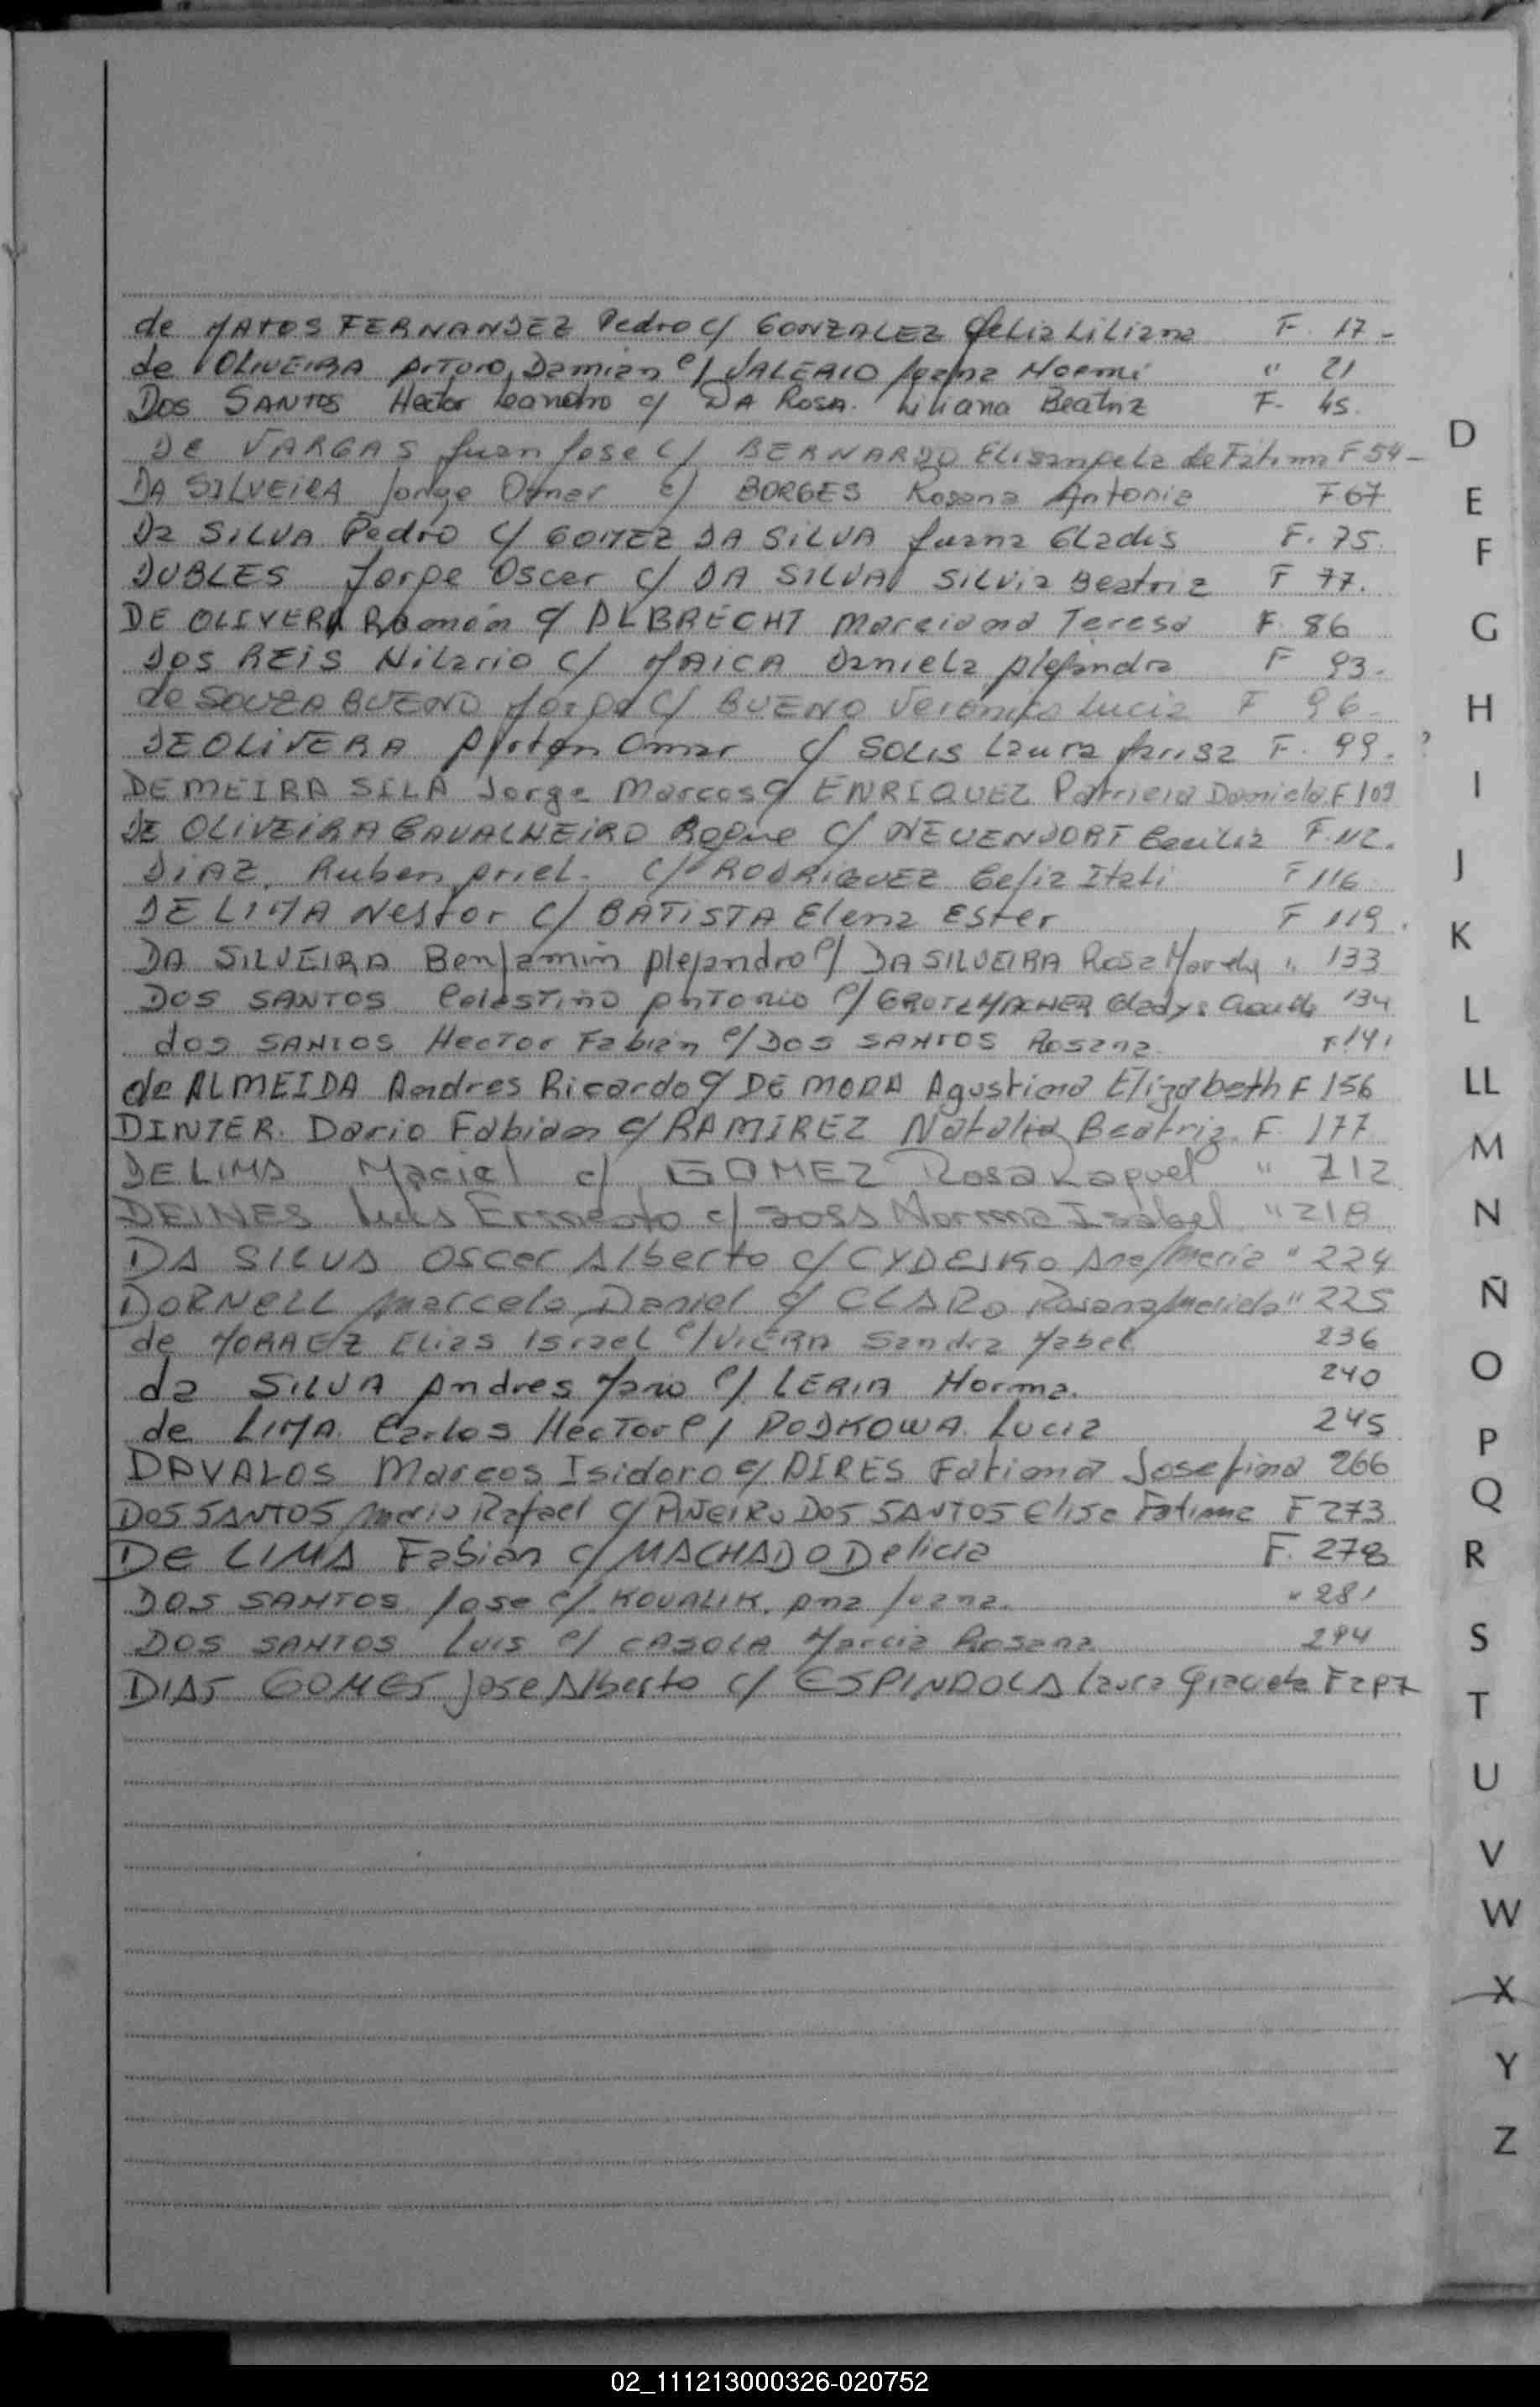 de MATOS FERNANDEZ Pedro c/ GONZALEZ Delia Liliana F. 17 -
de OLIVEIRA Arturo Damian c/ VALERIO Juana Noemi " 21
Dos SANTOS Hector Leandro c/ DA ROSA. Liliana Beatriz F. 45.
De VARGAS Juan Jose c/ BERNARDO Elisangela de Fatima F 54 -
DA SILVEIRA Jorge Omar c/ BORGES Rosana Antonia F 67
Da SILVA Pedro c/ GOMEZ DA SILVA Juana Gladis F. 75.
DUBLES Jorge Oscar c/ DA SILVA Silvia Beatriz F 77.
DE OLIVERA Ramón c/ ALBRECHT Marciana Teresa F. 86
Dos REIS Hilario c/ MAICA Daniela Alejandra F 93.
de SOUZA BUENO Jorge c/ BUENO Veronica Lucia F 96-
DE OLIVERA Ayrton Omar c/ SOLIS Laura F. 99.
DE MEIRA SILA Jorge Marcos c/ ENRIQUEZ Patricia Daniela F 109
DE OLIVEIRA CAVALHEIRO Roque c/ NEUENDORF Cecilia F. 112.
DIAZ, Ruben Ariel. c/ RODRIGUEZ Celia Itati F 116
DE LIMA Nestor c/ BATISTA Elena Ester F 119.
DA SILVEIRA Benjamin Alejandro c/ DA SILVEIRA Rosa " 133
DOS SANTOS Celestino Antonio c/ GROTZMACHER Gladys 134
dos SANTOS Hector Fabián c/ DOS SANTOS Rosana. F. 141
de ALMEIDA Andres Ricardo c/ DE MORA Agustina Elizabeth F 156
DINTER. Dario Fabian c/ RAMIREZ Natalia Beatriz. F. 177
DE LIMA Maciel c/ GOMEZ Rosa Raquel " 212
DEINES Luis Ernesto c/ Norma Isabel " 218
DA SILVA Oscar Alberto c/ Ana Maria " 224
DORNELL Marcelo Daniel c/ CLARO Rosana " 225
de MORAEZ Elias Israel c/ VIERA Sandra Mabel 236
da SILVA Andres Mario c/ LERIA Norma. 240
de LIMA. Carlos Hector c/ PODKOWA. Lucia 245
DAVALOS Marcos Isidoro c/ AIRES Fatima Josefina 266
DOS SANTOS Mario Rafael c/ PIÑEIRO DOS SANTOS Elisa Fatima F 273
DE LIMA Fabián c/ MACHADO Delicia F. 278
DOS SANTOS Jose c/ KOVALIK. Ana Juana. " 281
DOS SANTOS Luis c/ CASOLA Marcia Rosana 294
DIAS GOMES Jose Alberto c/ ESPINDOLA Laura Graciela F 297
D
E
F
G
H
I
J
K
L
LL
M
N
Ñ
O
P
Q
R
S
T
U
V
W
X
Y
Z
02_111213000326-020752